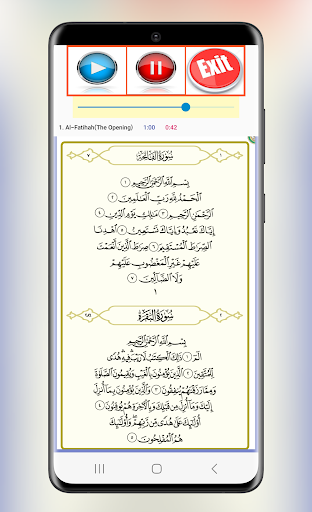 Exit
1. Al-Fatihah(The Opening) 1:00 0:42
٧ سُورَةُ الفَاتِحَةِ ١
بِسْمِ ٱللَّهِ ٱلرَّحْمَٰنِ ٱلرَّحِيمِ ١
ٱلْحَمْدُ لِلَّهِ رَبِّ ٱلْعَٰلَمِينَ ٢
ٱلرَّحْمَٰنِ ٱلرَّحِيمِ ٣ مَٰلِكِ يَوْمِ ٱلدِّينِ ٤
إِيَّاكَ نَعْبُدُ وَإِيَّاكَ نَسْتَعِينُ ٥ ٱهْدِنَا
ٱلصِّرَٰطَ ٱلْمُسْتَقِيمَ ٦ صِرَٰطَ ٱلَّذِينَ أَنْعَمْتَ
عَلَيْهِمْ غَيْرِ ٱلْمَغْضُوبِ عَلَيْهِمْ
وَلَا ٱلضَّآلِّينَ ٧
١
٢٨٦ سُورَةُ البَقَرَةِ ٢
بِسْمِ ٱللَّهِ ٱلرَّحْمَٰنِ ٱلرَّحِيمِ
الٓمٓ ١ ذَٰلِكَ ٱلْكِتَٰبُ لَا رَيْبَ ۛ فِيهِ ۛ هُدًى
لِّلْمُتَّقِينَ ٢ ٱلَّذِينَ يُؤْمِنُونَ بِٱلْغَيْبِ وَيُقِيمُونَ ٱلصَّلَوٰةَ
وَمِمَّا رَزَقْنَٰهُمْ يُنفِقُونَ ٣ وَٱلَّذِينَ يُؤْمِنُونَ بِمَآ أُنزِلَ
إِلَيْكَ وَمَآ أُنزِلَ مِن قَبْلِكَ وَبِٱلْءَاخِرَةِ هُمْ يُوقِنُونَ ٤
أُو۟لَٰٓئِكَ عَلَىٰ هُدًى مِّن رَّبِّهِمْ ۖ وَأُو۟لَٰٓئِكَ
هُمُ ٱلْمُفْلِحُونَ ٥